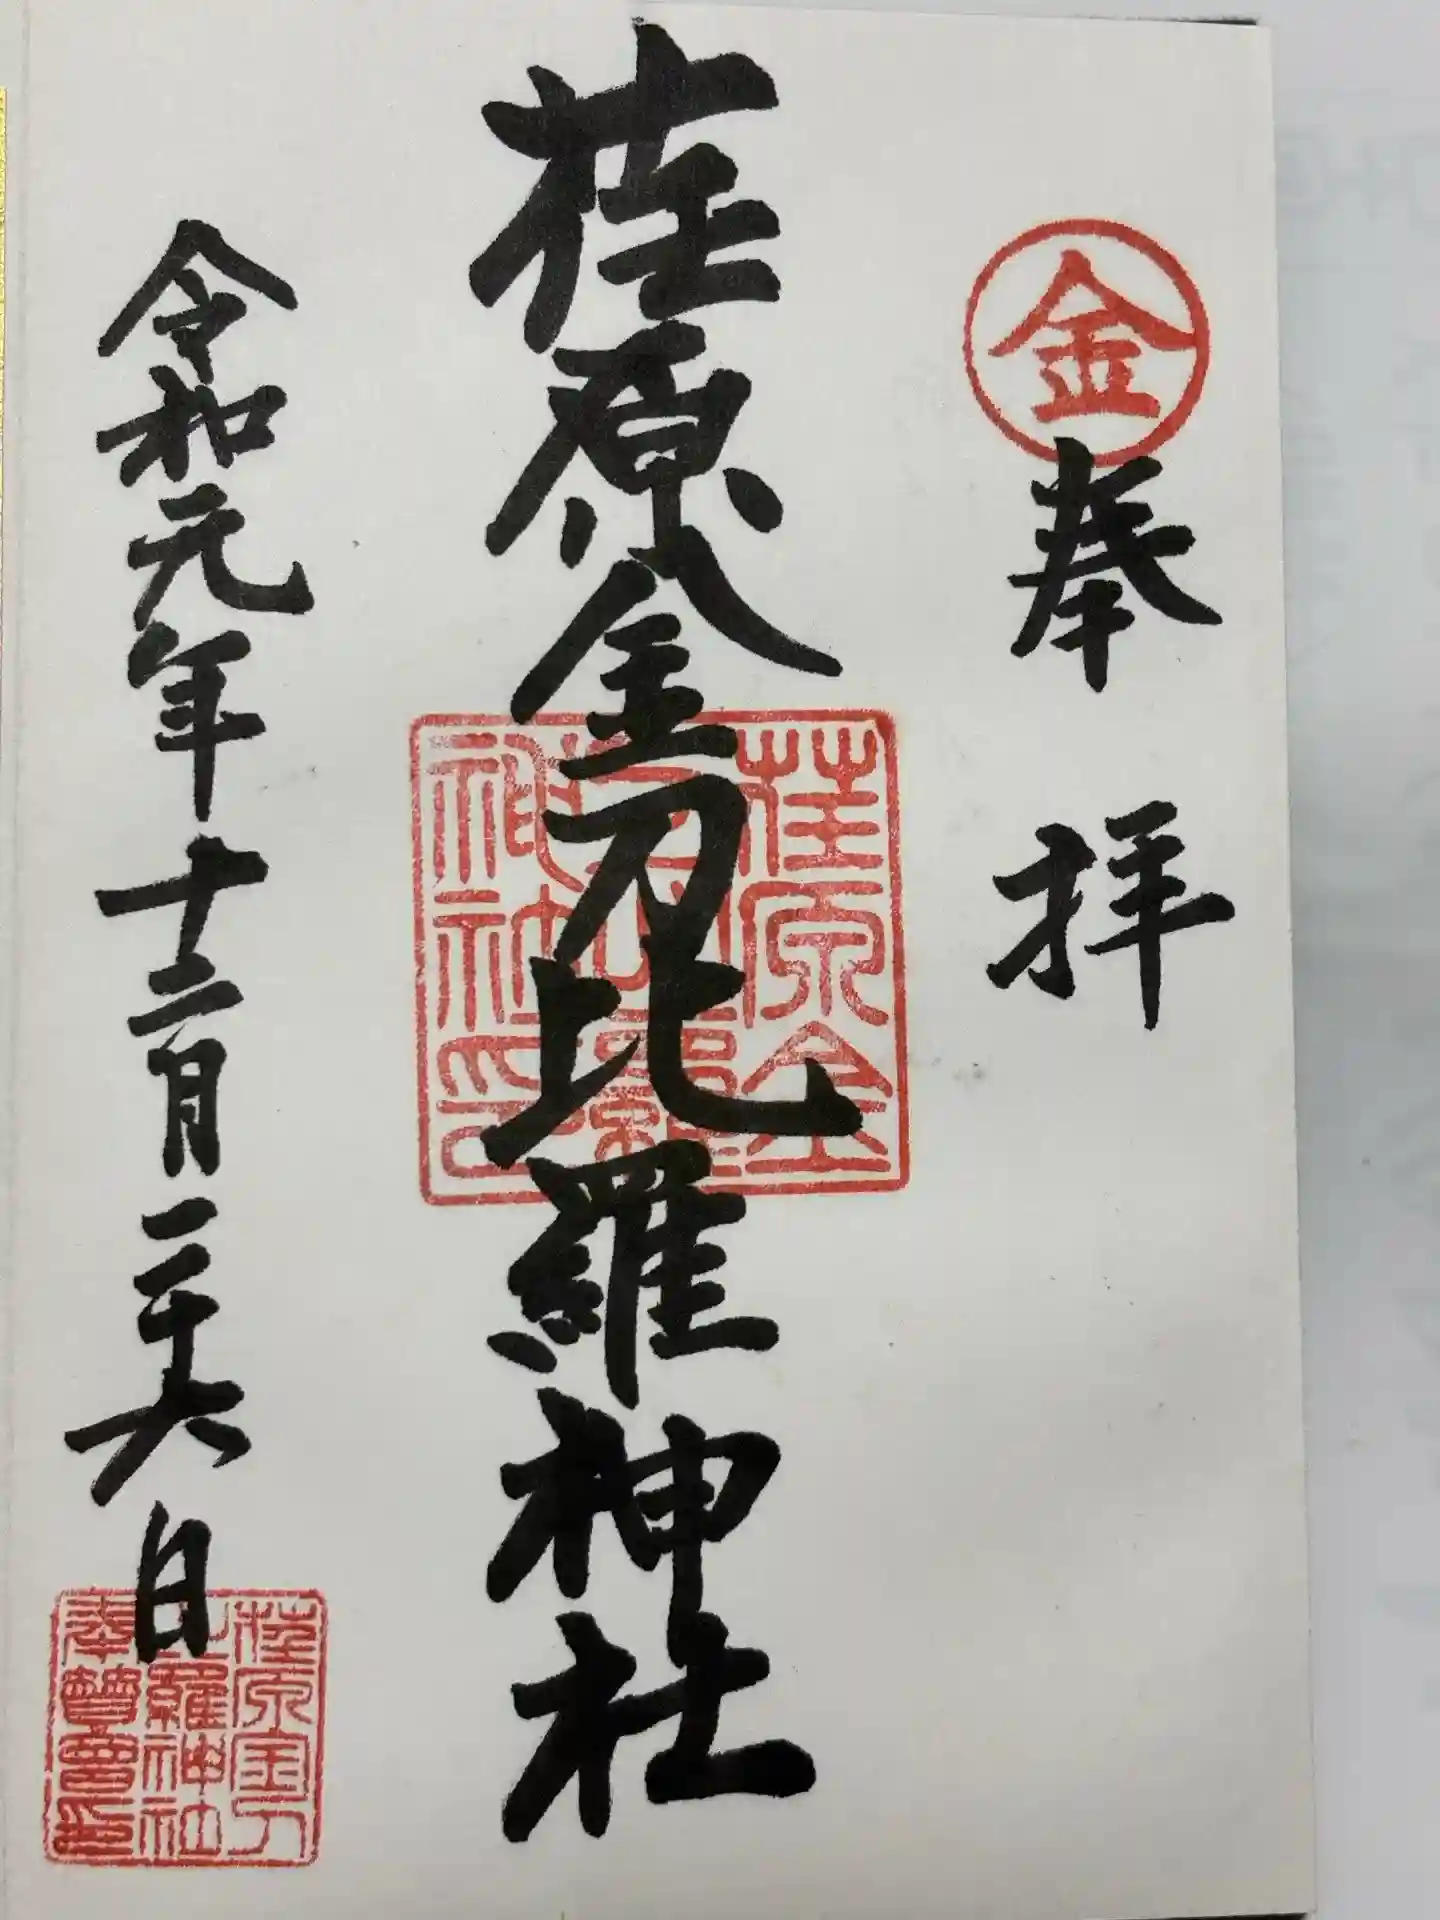 金
奉拝
荏原金刀比羅神社
荏原金
刀比羅
神社印
令和元年十二月二十六日
荏原金刀
比羅神社
奉賛會印